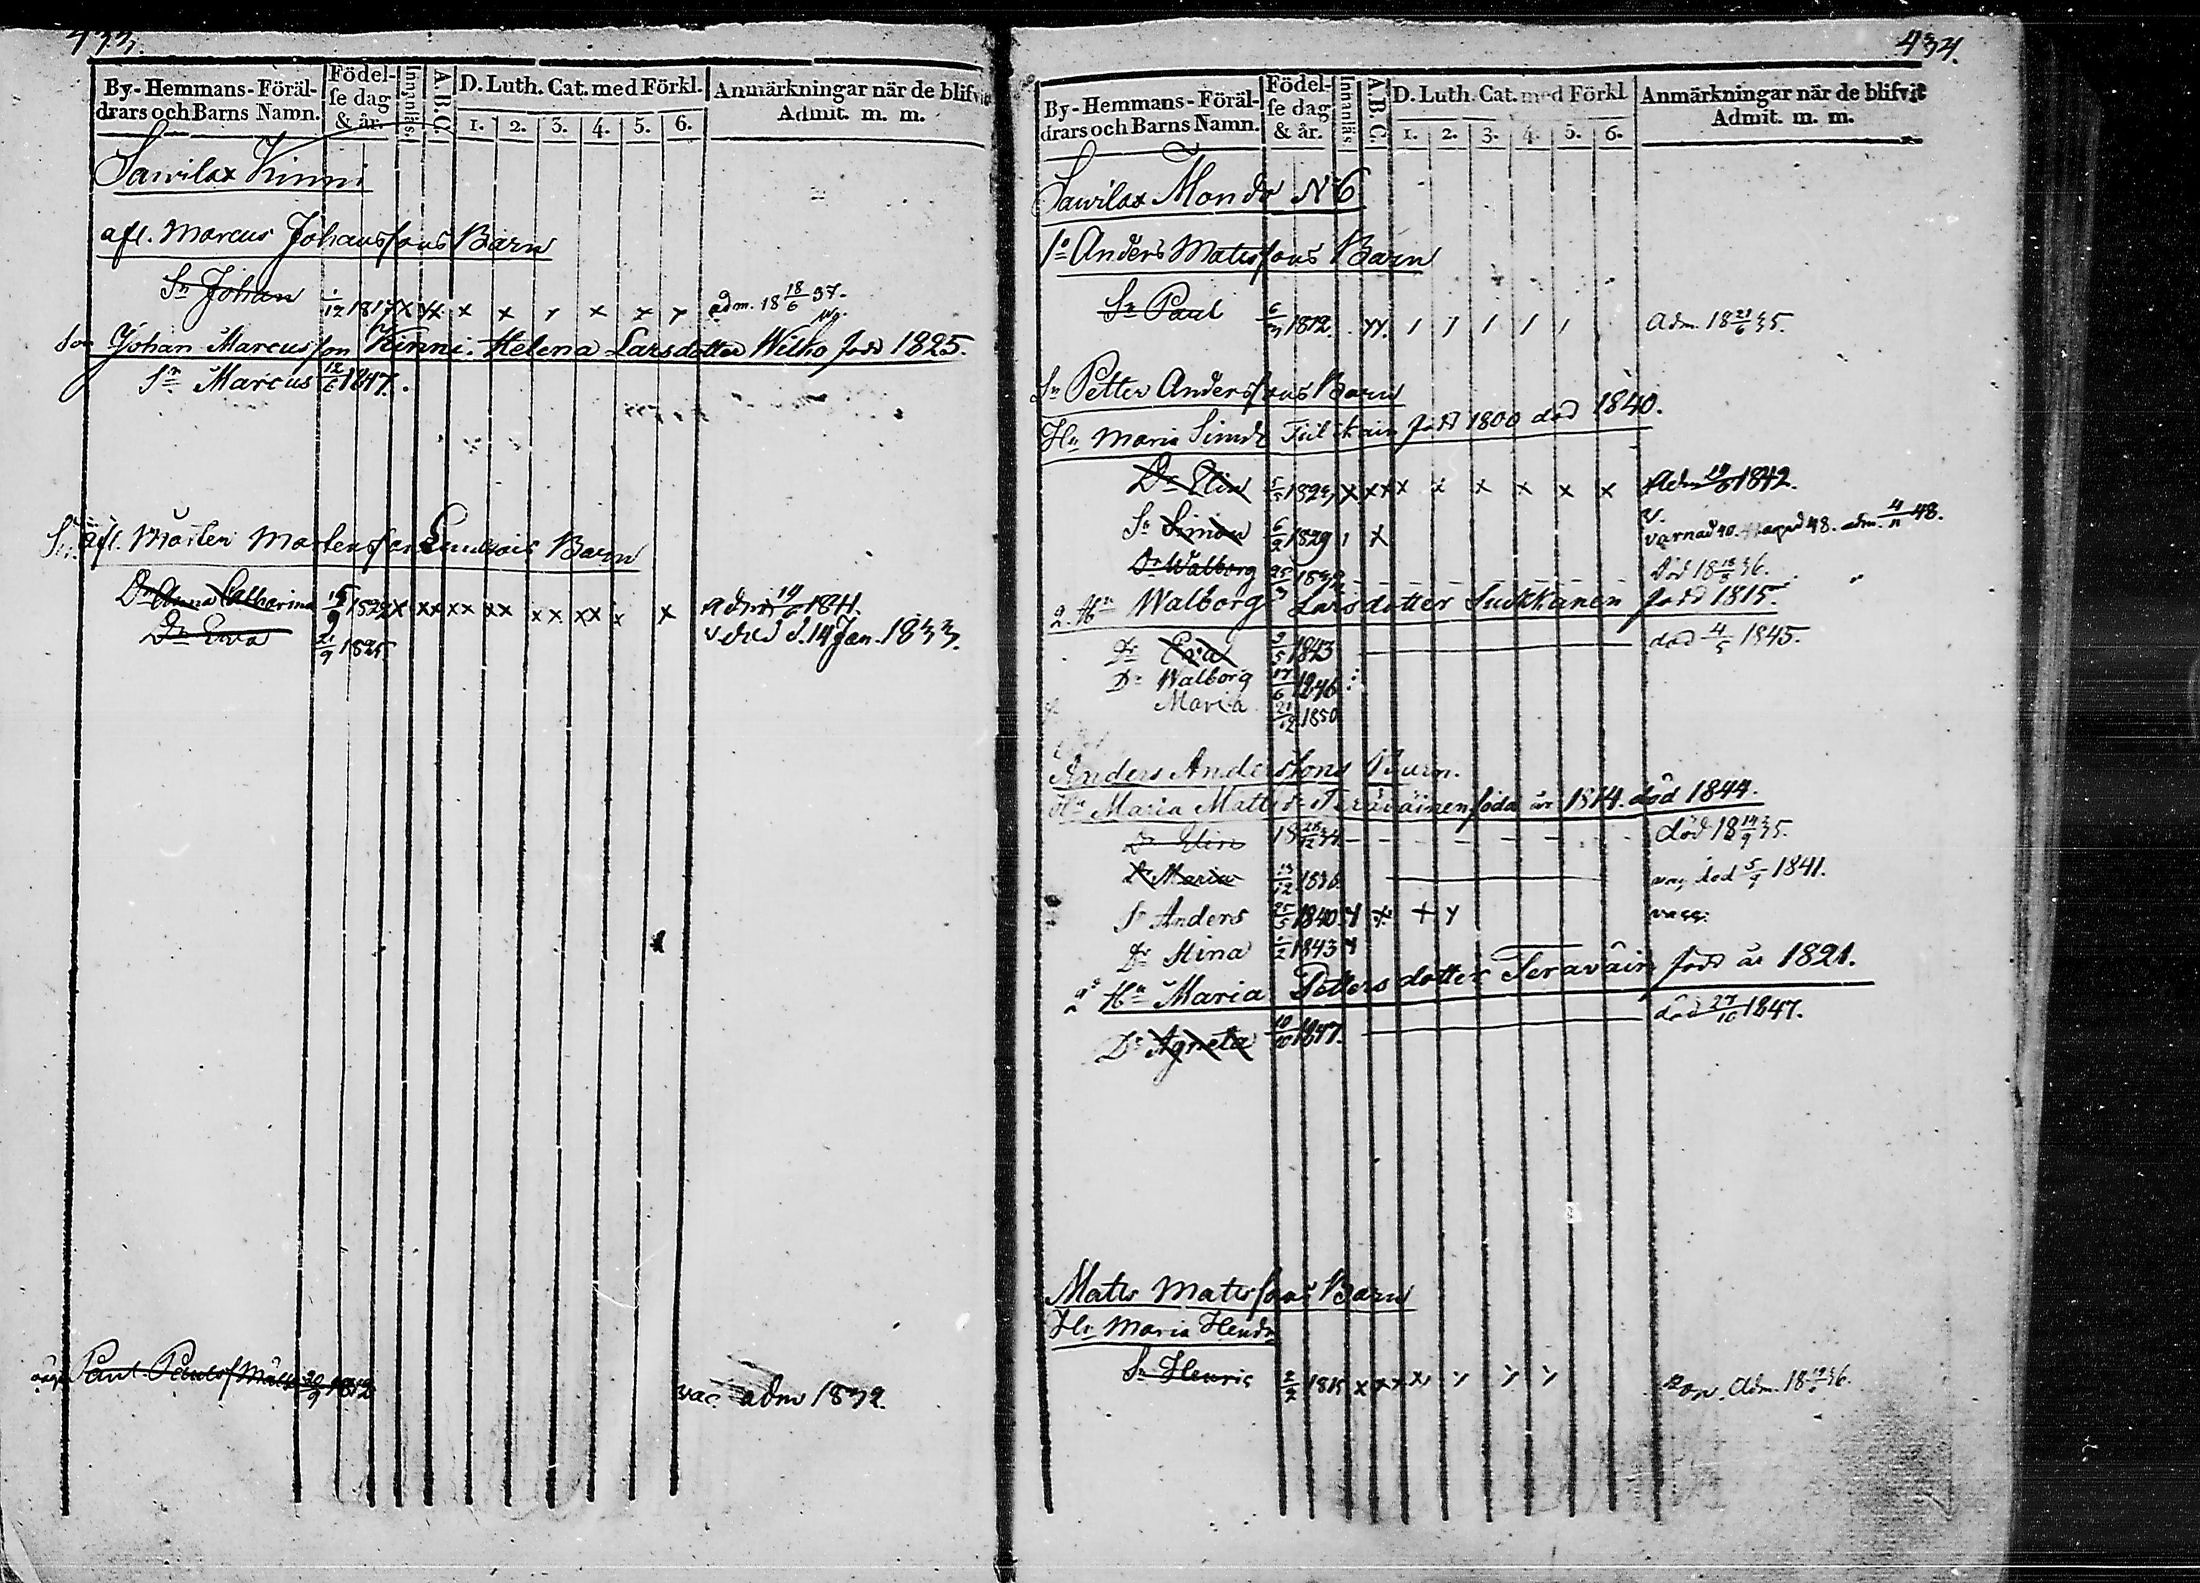 433.
By-Hemmans-Föräl-
drars och Barns Namn.
Födel-
se dag
& år.
Innanläs.
A.B.C.
D. Luth. Cat. med Förkl.
1. 2. 3. 4. 5. 6.
Anmärkningar när de blifvit
Admit. m. m.
Sawilax Kinni
afl. Marcus Johanssons Barn
Sn Johan 1/12 1817 x x x x x x x x adm. 18 18/6 37.
Son Johan Marcusson Kinni. Helena Larsdotter Wilho född 1825.
Sn Marcus 12/6 1847.
afl. Mårten Mårtensson Barn
Dr Anna Catharina 15/9 x xx xx xx xx xx x x adm 1841.
Dr Ewa 21/9 1825. d. 14 Jan. 1833.
Paul Paulss 20/9 1812 vac. adm 1832.
434.
By-Hemmans-Föräl-
drars och Barns Namn.
Födel-
se dag
& år.
Innanläs
A.B.C.
D. Luth. Cat. med Förkl
1. 2. 3. 4. 5. 6.
Anmärkningar när de blifvit
Admit. m. m.
Sawilax Mondo No 6
Anders Matssons Barn
Sn Paul 6/3 1812. Adm. 18 21/6 35.
Sn Petter Anderssons Barn
Hu Maria Simdr Tiilikain född 1800 död 1840.
Dr Elin x xx x x x x x x Adm 1842.
Sn Simon 6/2 1829 x varnad 40. 48. adm. 4/11 48.
Dr Walborg 25/3 1832 Död 18 36.
2. Hu Walborg Larsdotter Suckkanen född 1815.
Dr Eva 3/5 1843 död 4/5 1845.
Dr Walborg 17/6 1846
Maria 21/12 1850
Anders Anderssons Barn.
Hu Maria Mattsdr Teräväinen föda år 1814. död 1844.
Dr Elin 18 34 död 18 14/9 35.
Dr Maria 13/12 1836 död 5/9 1841.
Sn Anders 25/5 1840 vacc:
Dr Stina 1/2 1843
2 Hu Maria Pettersdotter Teräväin född år 1821.
Dr Agneta 10/10 1847. död 27/10 1847.
Mats Matssons Barn
Hu Maria Hendr
Sn Henric 2/2 1815 x x x x Adm. 18 36.